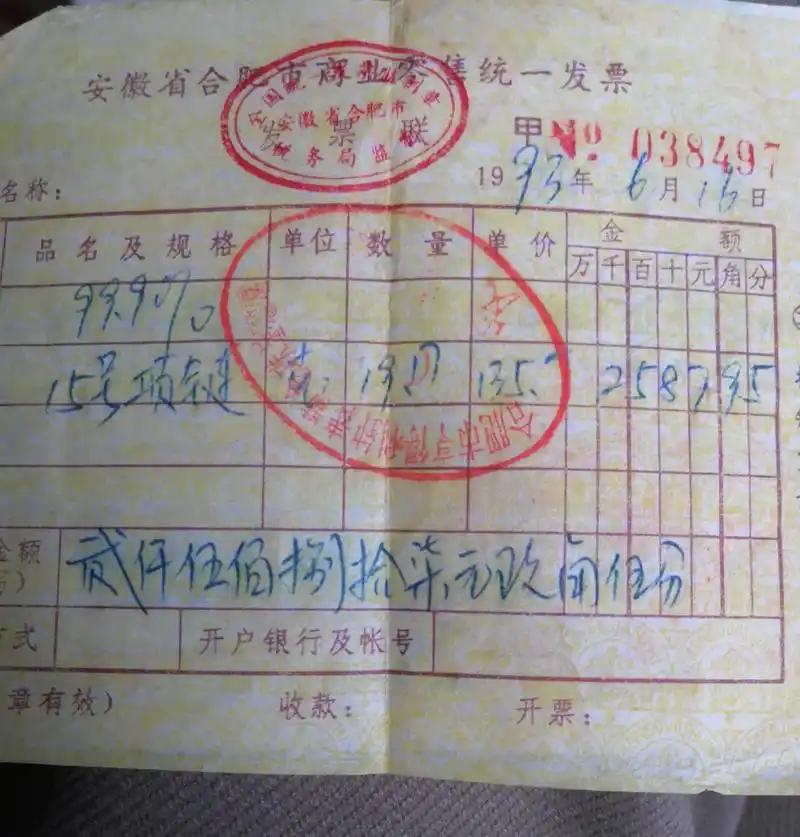 安徽省合肥市商业零售统一发票
安徽省合肥市
发票联
税务局监制
甲 No 038497
名称：
1993年6月16日
品名及规格 单位 数量 单价 金额
万 千 百 十 元 角 分
99.9%
15号项链 135. 2587 95
金额
贰仟伍佰捌拾柒元玖角伍分
方式 开户银行及帐号
章有效） 收款： 开票：
合肥市